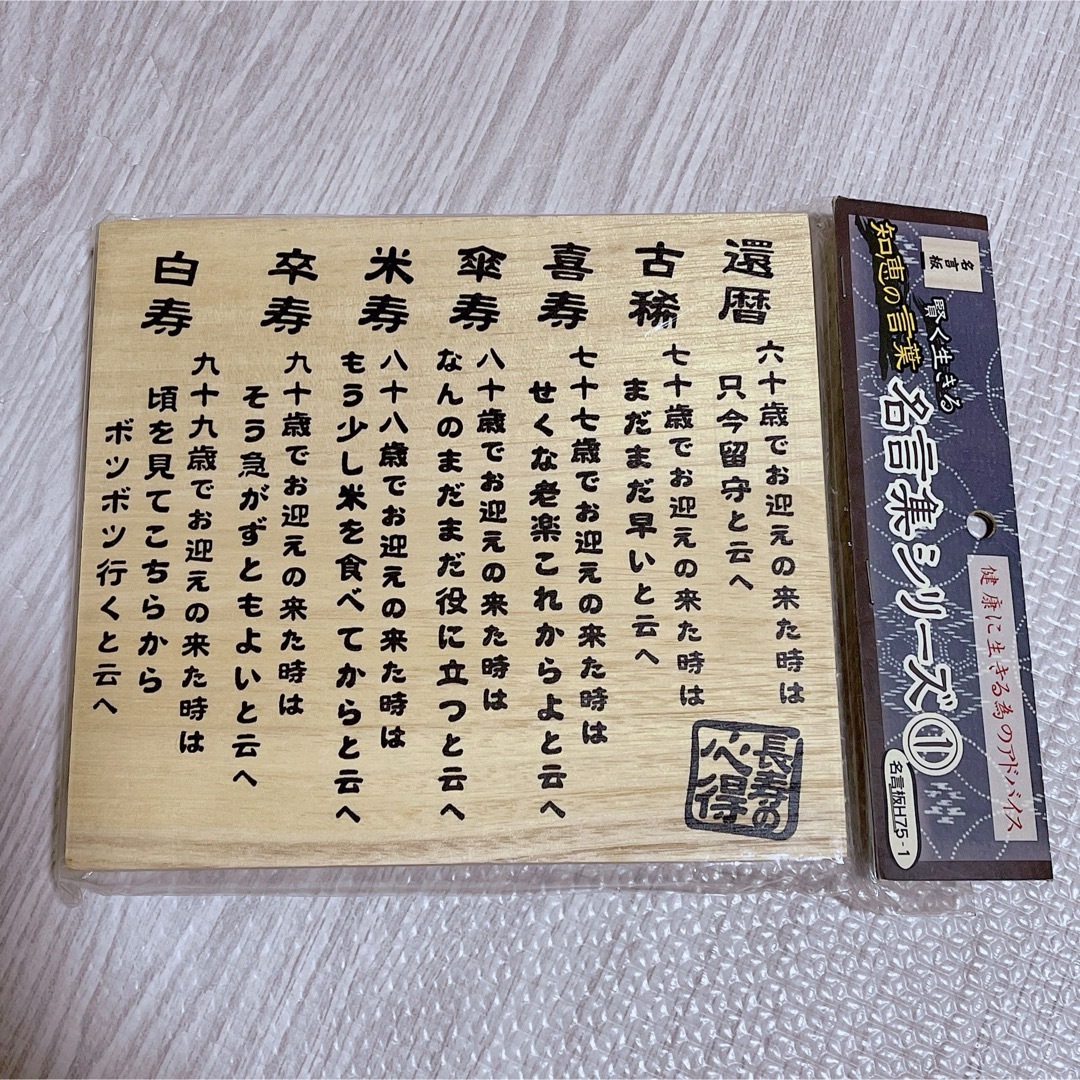 還暦
六十歳でお迎えの来た時は
只今留守と云へ
古稀
七十歳でお迎えの来た時は
まだまだ早いと云へ
喜寿
七十七歳でお迎えの来た時は
せくな老楽これからよと云へ
傘寿
八十歳でお迎えの来た時は
なんのまだまだ役に立つと云へ
米寿
八十八歳でお迎えの来た時は
もう少し米を食べてからと云へ
卒寿
九十歳でお迎えの来た時は
そう急がずともよいと云へ
白寿
九十九歳でお迎えの来た時は
頃を見てこちらから
ボツボツ行くと云へ
長寿の
心得
名言板
賢く生きる
知恵の言葉
名言集シリーズ①
健康に生きる為のアドバイス
名言板H75-1